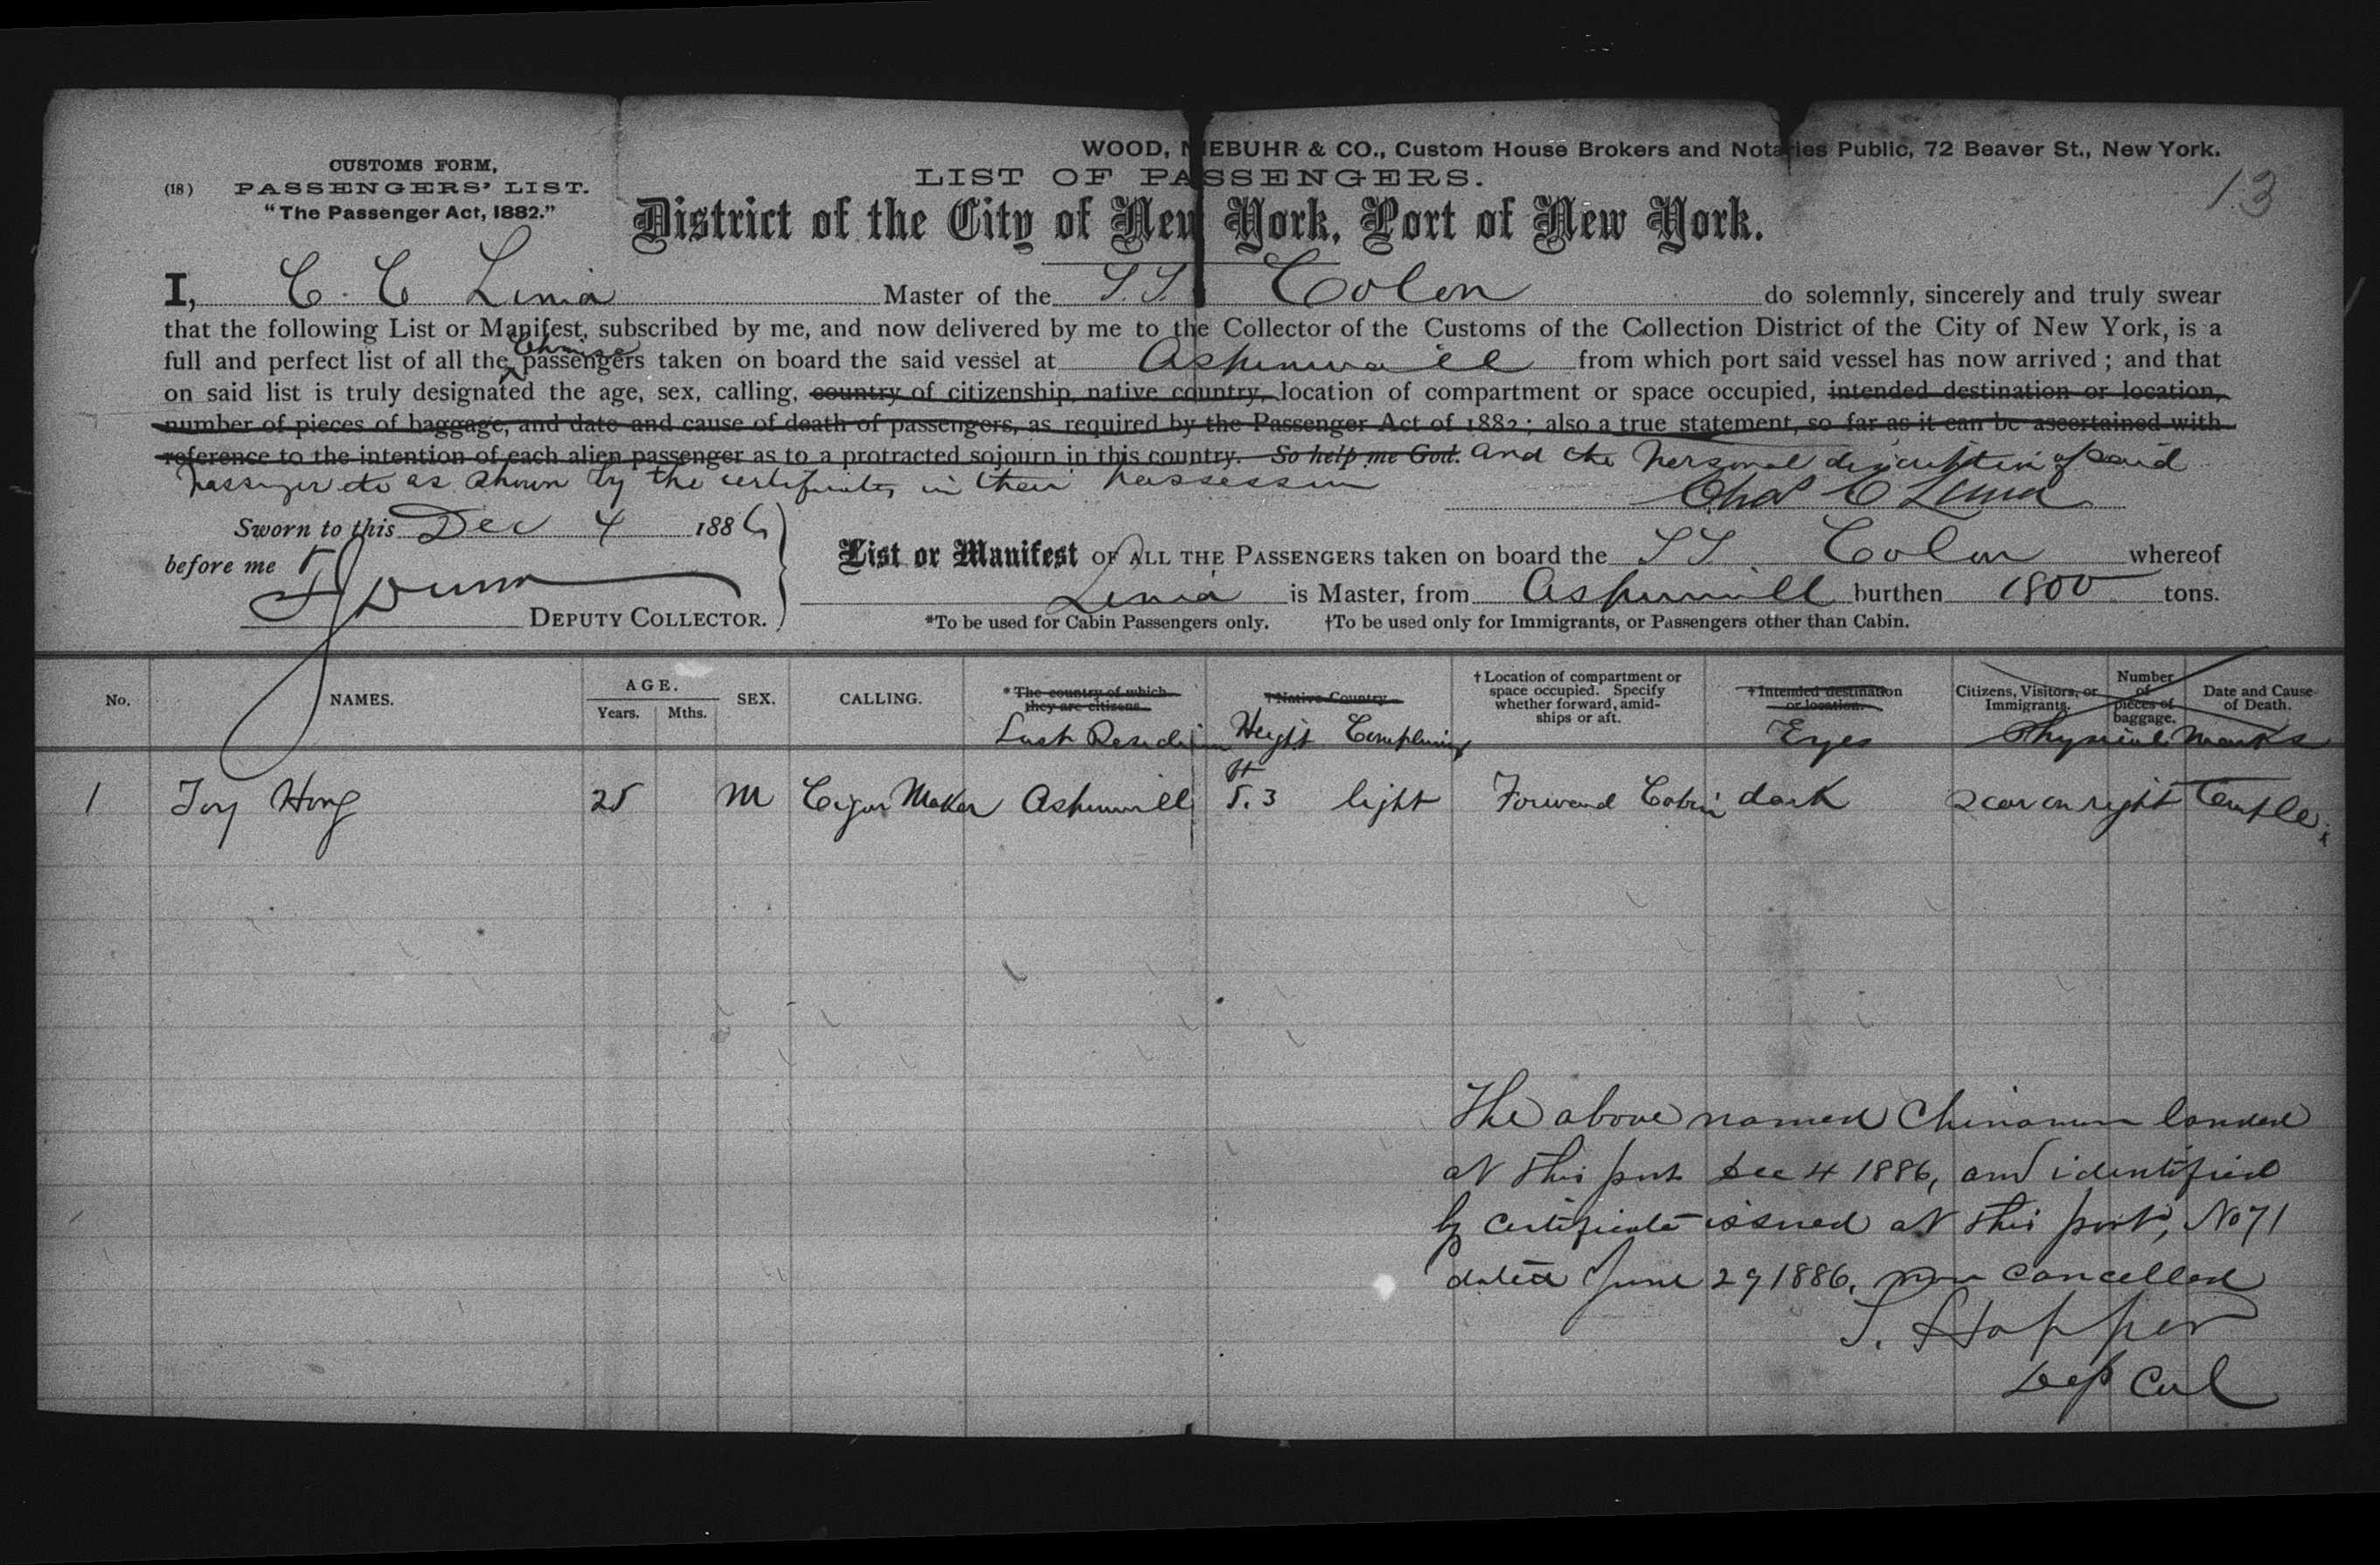 WOOD, NIEBUHR & CO., Custom House Brokers and Notaries Public, 72 Beaver St., New York.
CUSTOMS FORM,
(18) PASSENGERS' LIST.
"The Passenger Act, 1882."
LIST OF PASSENGERS.
13
District of the City of New York, Port of New York.
I, C. C Lima Master of the S.S. Colon do solemnly, sincerely and truly swear
that the following List or Manifest, subscribed by me, and now delivered by me to the Collector of the Customs of the Collection District of the City of New York, is a
Chinese
full and perfect list of all the passengers taken on board the said vessel at Aspinwall from which port said vessel has now arrived; and that
on said list is truly designated the age, sex, calling, country of citizenship, native country, location of compartment or space occupied, intended destination or location,
number of pieces of baggage, and date and cause of death of passengers, as required by the Passenger Act of 1882; also a true statement, so far as it can be ascertained with
reference to the intention of each alien passenger as to a protracted sojourn in this country. So help me God. and the personal description of said
passenger etc as shown by the certificates in their possession
Chas C Lima
Sworn to this Dec 4 1886
before me
DEPUTY COLLECTOR.
List or Manifest OF ALL THE PASSENGERS taken on board the SS Colon whereof
Lima is Master, from Aspinwall burthen 1800 tons.
*To be used for Cabin Passengers only. †To be used only for Immigrants, or Passengers other than Cabin.
No. NAMES. AGE. Years. Mths. SEX. CALLING. *The country of which they are citizens. †Native Country. †Location of compartment or space occupied. Specify whether forward, amidships or aft. †Intended destination or location. Citizens, Visitors, or Immigrants. Number of pieces of baggage. Date and Cause of Death.
Last Residence Height Complexion Eyes Physical Marks
1 Toy Hong 25 M Cigar Maker Aspinwall ft 5.3 light Forward Cabin dark Scar on right Temple
The above named Chinaman landed
at this port Dec 4 1886, and identified
by certificate issued at this port, No 71
dated June 29 1886, now cancelled
S. Hopper
Dep Col